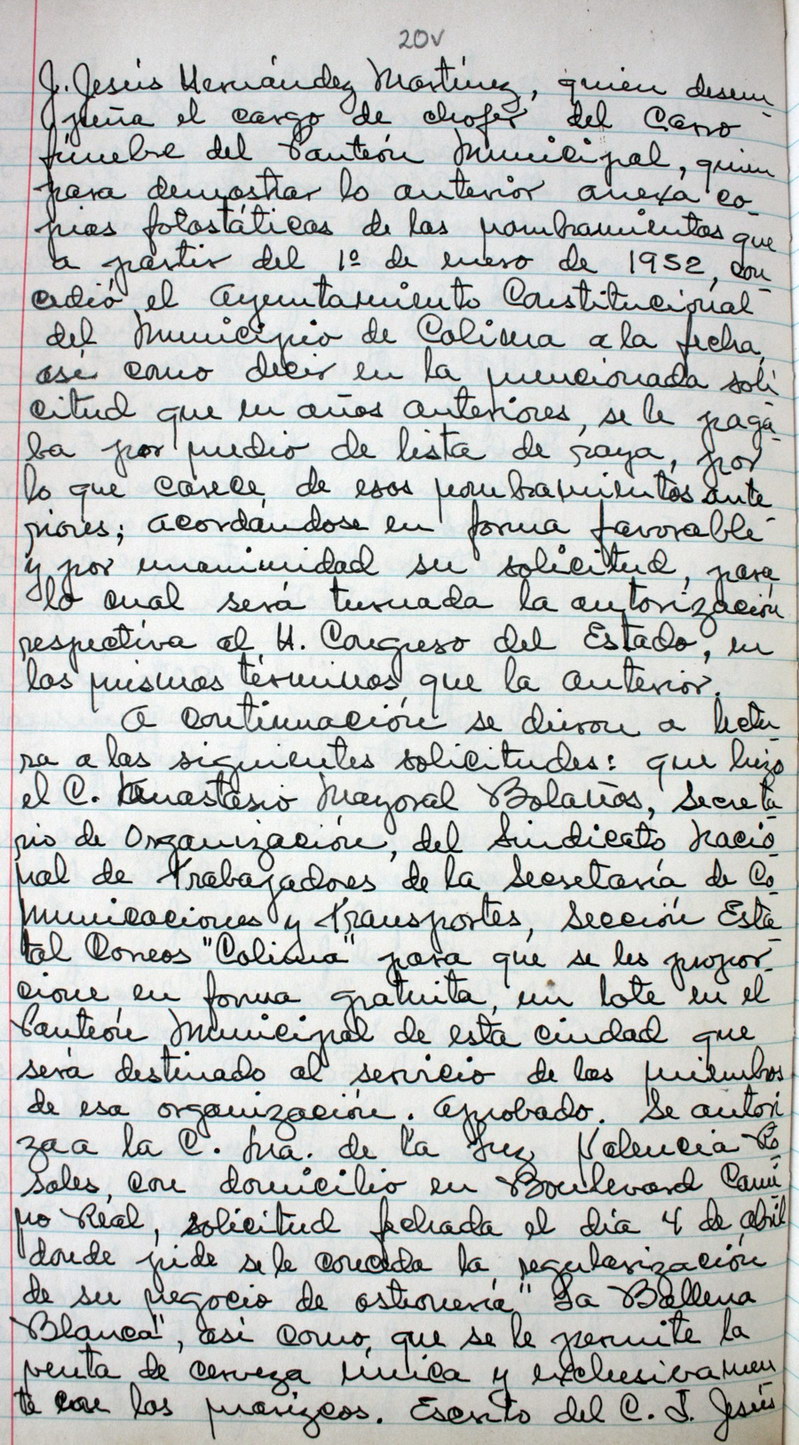 20v
J. Jesús Hernández Martínez, quien desem-
peña el cargo de chofer del Carro
fúnebre del Panteón Municipal, quien
para demostrar lo anterior anexa co-
pias fotostáticas de los nombramientos que
a partir del 1º de enero de 1952, con-
cedió el Ayuntamiento Constitucional
del Municipio de Colima a la fecha,
así como decir en la mencionada soli-
citud que en años anteriores, se le paga-
ba por medio de lista de raya, por
lo que carece de esos nombramientos ante
riores; acordándose en forma favorable
y por unanimidad su solicitud, para
lo cual será turnada la autorización
respectiva al H. Congreso del Estado, en
los mismos términos que la anterior.
A continuación se dieron a lectu-
ra a las siguientes solicitudes: que hizo
el C. Anastasio Mayoral Bolaños, Secreta-
rio de Organización, del Sindicato Nacio-
nal de Trabajadores de la Secretaría de Co-
municaciones y Transportes, Sección Esta-
tal Correos "Colima" para que se les propor-
cione en forma gratuita, un lote en el
Panteón Municipal de esta ciudad que
será destinado al servicio de los miembros
de esa organización. Aprobado. Se autori-
za a la C. Ma. de la Luz Valencia Ro-
sales, con domicilio en Boulevard Cami-
no Real, solicitud fechada el día 4 de abril
donde pide se le conceda la regularización
de su negocio de ostionería "La Ballena
Blanca", así como, que se le permite la
venta de cerveza única y exclusivamen-
te con los mariscos. Escrito del C. J. Jesús